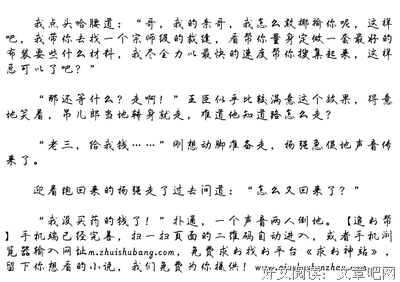 我点头哈腰道：“哥，我的亲哥，我怎么敢揶揄你呢，这样
吧，我带你去找一个宗师级的裁缝，看帮你量身定做一套最好的
布装要些什么材料，我尽全力以最快的速度帮你搜集起来，这样
总可以了吧？”
“那还等什么？走啊！”王臣似乎比较满意这个效果，得意
地笑着，吊儿郎当地转身就走，难道他知道路怎么走？
“老三，给我钱……”刚想动脚准备走，杨强急促地声音传
来了。
迎着跑回来的杨强走了过去问道：“怎么又回来了？”
“我没买药的钱了！”扑通，一个声音两人倒地。【追书帮
】手机端已经完善，扫一扫页面的二维码自动进入，或者手机浏
览器输入网址m.zhuishubang.com，免费求书找书平台《求书神站》，
留下你想看的小说，我们免费为你提供！www.zhuishubangzhan.com
好文阅读：文章吧网